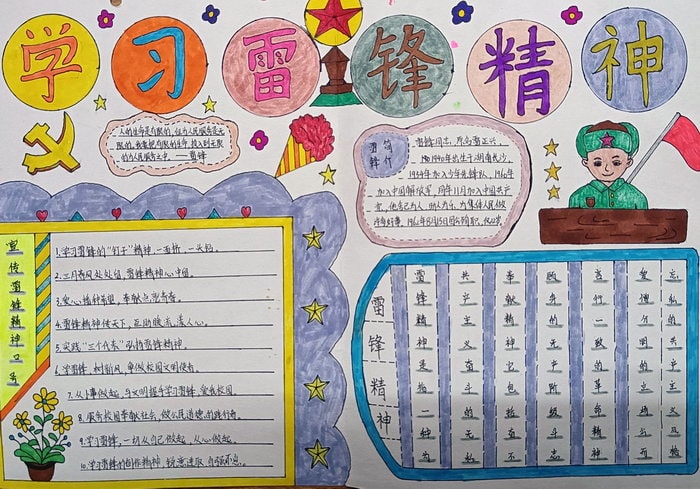 学习雷锋精神
人的生命是有限的,但为人民服务是无
限的,我要把有限的生命,投入到无限
的为人民服务之中。——雷锋
雷锋简介
雷锋同志,原名雷正兴,
1940年出生于湖南长沙,
1954年加入少年先锋队,1960年
加入中国解放军,同年11月加入中国共产
党。他舍己为人,助人为乐,为集体人民做
许多好事。1962年8月15日因公殉职,仅22岁.
宣传雷锋精神口号
1.学习雷锋的“钉子”精神,一面挤,一头钻。
2.三月春风处处留,雷锋精神心中留。
3.爱心播种希望,奉献点亮青春。
4.雷锋精神传天下,互助暖流漾人心。
5.实践“三个代表”弘扬雷锋精神。
6.学雷锋,树新风,争做校园文明使者。
7.从小事做起,与文明握手学习雷锋,爱我校园。
8.服务校园奉献社会,做人民道德的践行者。
9.学习雷锋,一切从自己做起,从心做起。
10.学习雷锋的创业精神,锐意进取,自强不息。
雷锋精神
雷锋精神是指一种为
共产主义奋斗的无私
奉献精神它包括奋不
的无产阶级斗志
言行一致的革命精神
爱憎分明的
忘私的共产主义风格